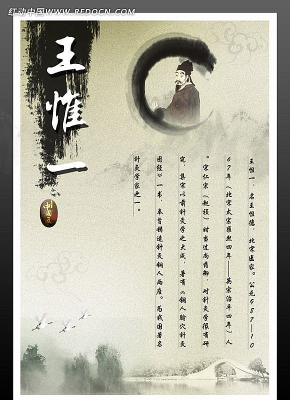 红动中国 WWW.REDOCN.COM
王惟一
王惟一,名王惟德,北宋医家。公元987——10
67年(北宋太宗雍熙四年——英宗治平四年)人
。宋仁宗(赵祯)时当过尚药御,对针灸学很有研
究,集宋以前针灸学之大成,著有《铜人腧穴针灸
图经》一书,奉旨铸造针灸铜人两座。为我国著名
针灸学家之一。